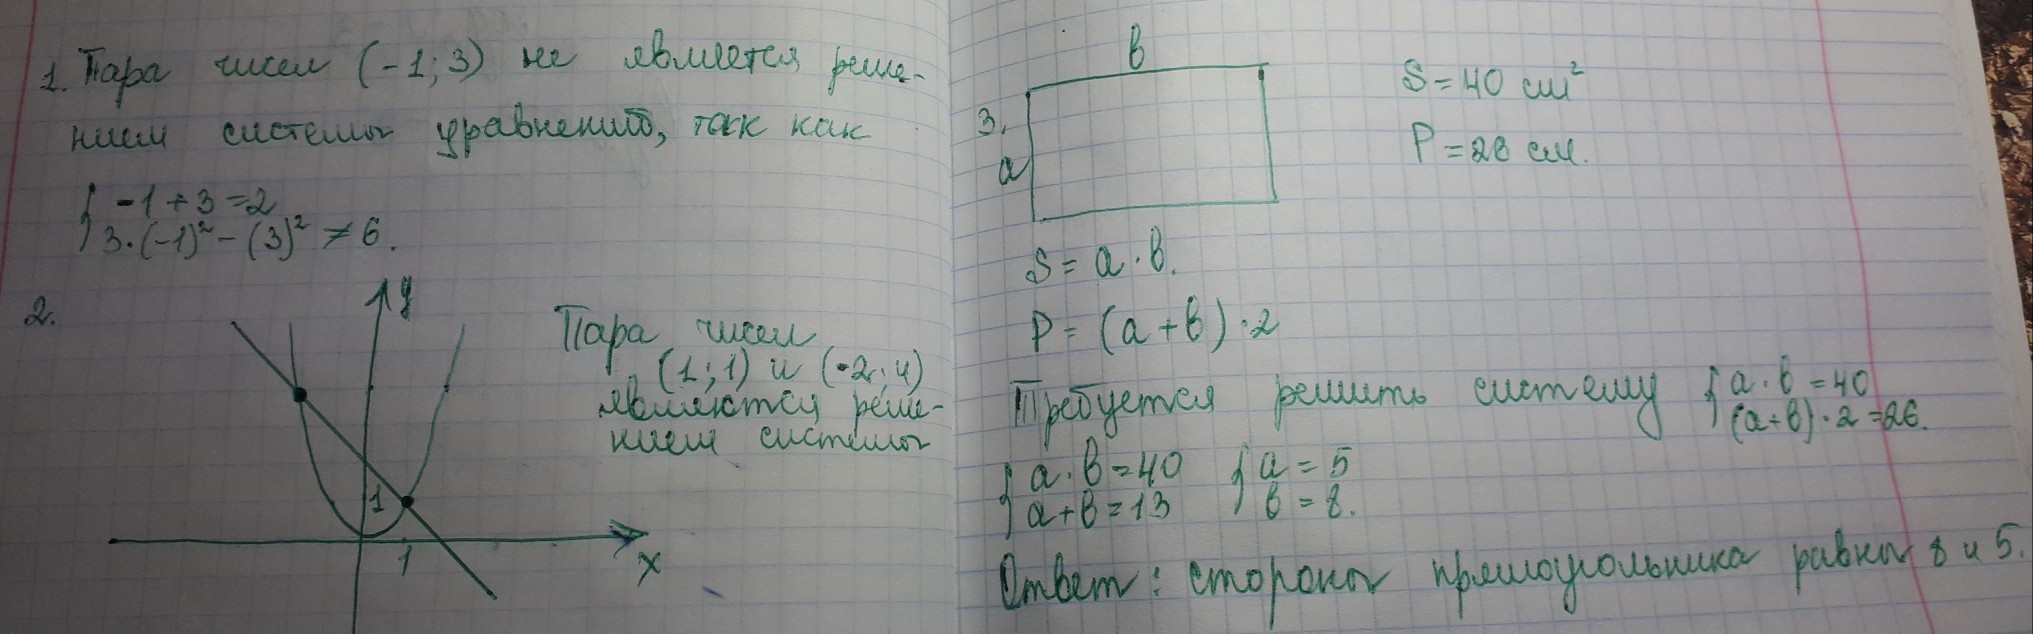 1. Пара чисел (-1; 3) не является реше-
нием системы уравнений, так как
{ -1 + 3 = 2
3·(-1)² - (3)² ≠ 6.
2.
y
Пара чисел
(1; 1) и (-2; 4)
являются реше-
нием системы
1
1
x
3.
b
a
S = 40 см²
P = 26 см.
S = a · b.
P = (a + b) · 2
Требуется решить систему { a · b = 40
(a + b) · 2 = 26.
{ a · b = 40 { a = 5
a + b = 13 b = 8.
Ответ: стороны прямоугольника равны 8 и 5.